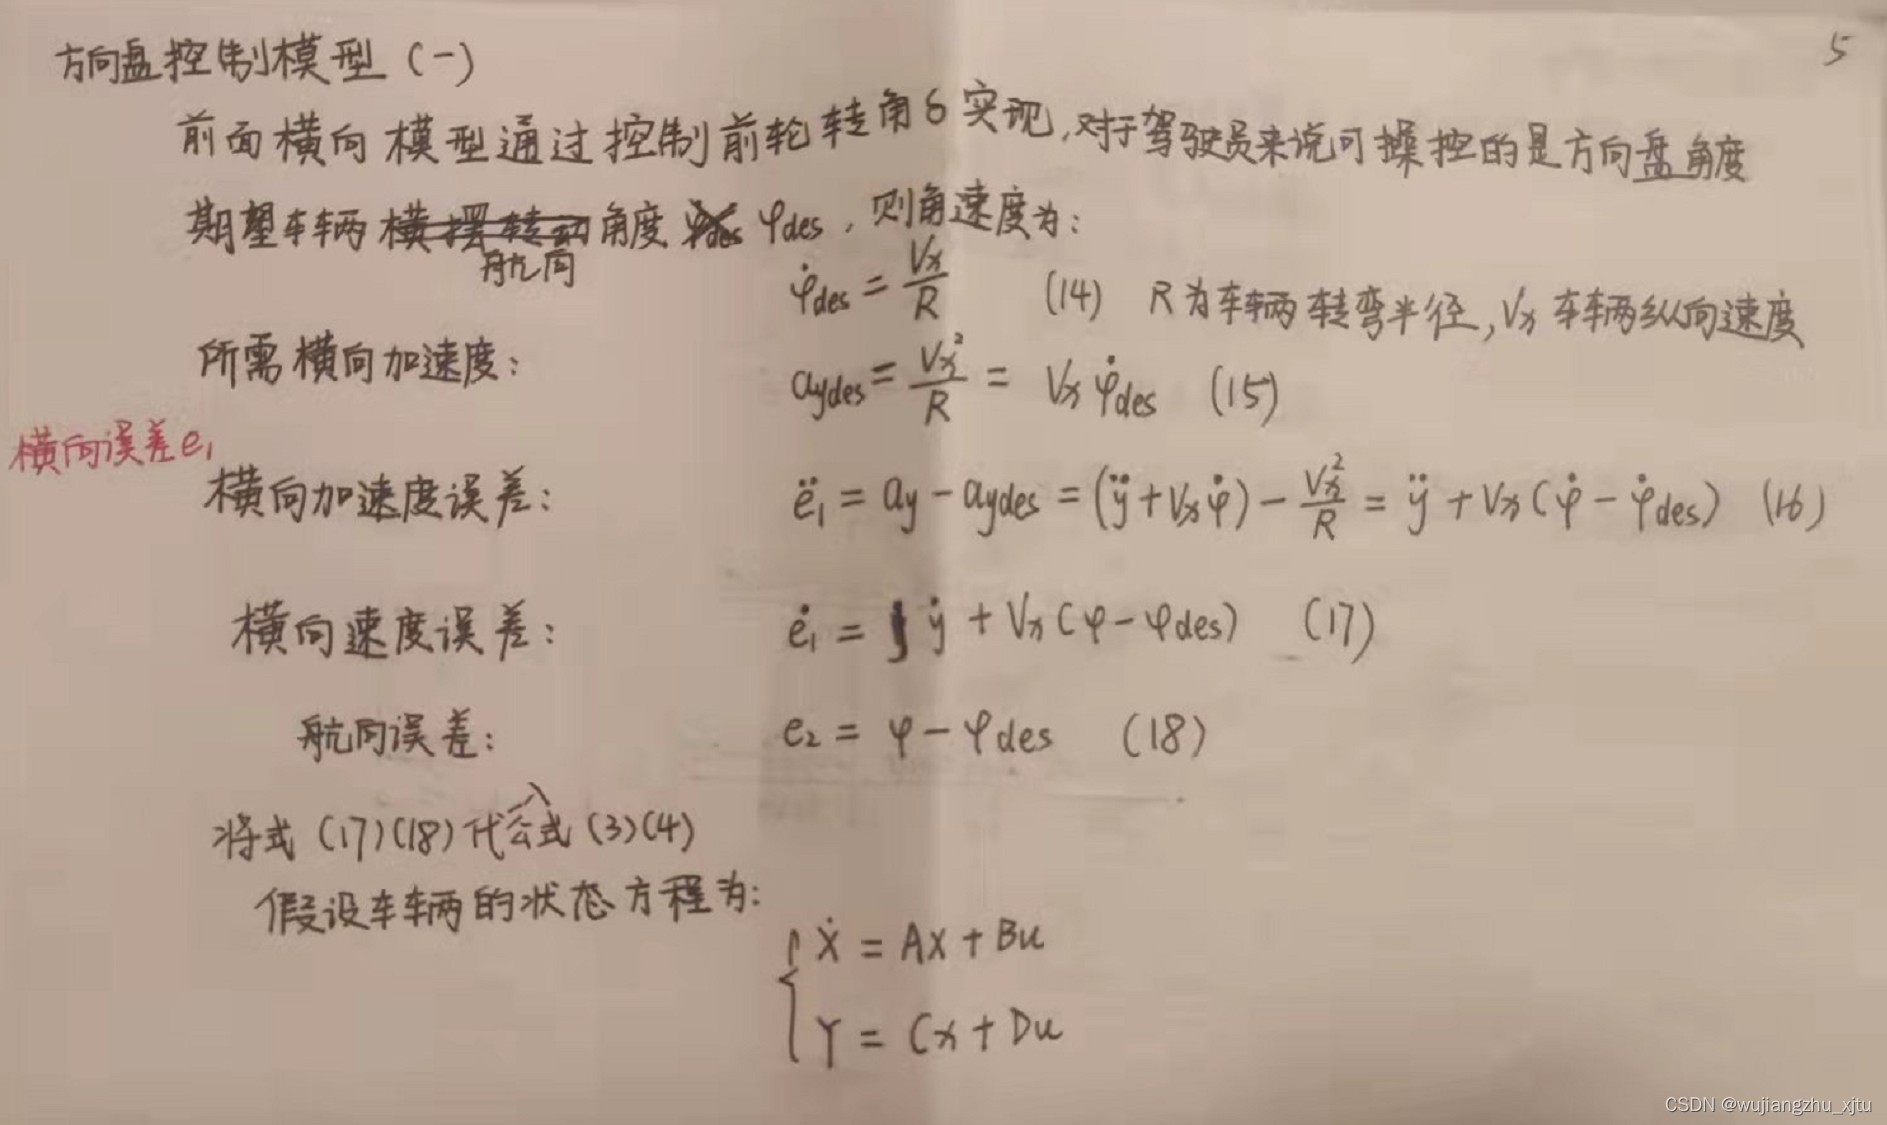 5
方向盘控制模型(一)
前面横向模型通过控制前轮转角δ实现,对于驾驶员来说可操控的是方向盘角度
期望车辆横摆转动角度 φdes φdes,则角速度为:
航向
φ̇des = Vx/R (14) R为车辆转弯半径,Vx车辆纵向速度
所需横向加速度: aydes = Vx²/R = Vx φ̇des (15)
横向误差e₁
横向加速度误差: ë₁ = ay - aydes = (ÿ + Vxφ̇) - Vx²/R = ÿ + Vx(φ̇ - φ̇des) (16)
横向速度误差: ė₁ = ẏ + Vx(φ - φdes) (17)
航向误差: e₂ = φ - φdes (18)
将式(17)(18)代入公式(3)(4)
假设车辆的状态方程为:
Ẋ = AX + Bu
Y = Cx + Du
CSDN @wujiangzhu_xjtu